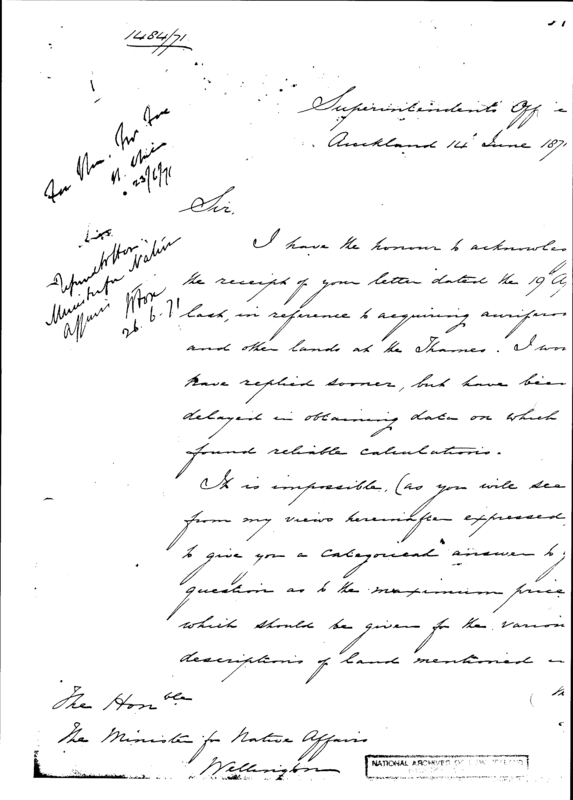 1484/71
Superintendents Off e
Auckland 14 June 187
For Hon. Mr Fox
23/6/71
Sir,
I have the honour to acknowle
the receipt of your letter dated the 19 Ap
last, in reference to acquiring aurifero
and other lands at the Thames. I wo
have replied sooner, but have been
delayed in obtaining data on which
found reliable calculations.
It is impossible, (as you will see
from my views hereinafter expressed,
to give you a categorical answer to y
question as to the maximum price
which should be given for the variou
descriptions of land mentioned
Minister for Native
Affairs WFox
26.6.71
The Honble
The Minister for Native Affairs
Wellington
NATIONAL ARCHIVES OF NEW ZEALAND